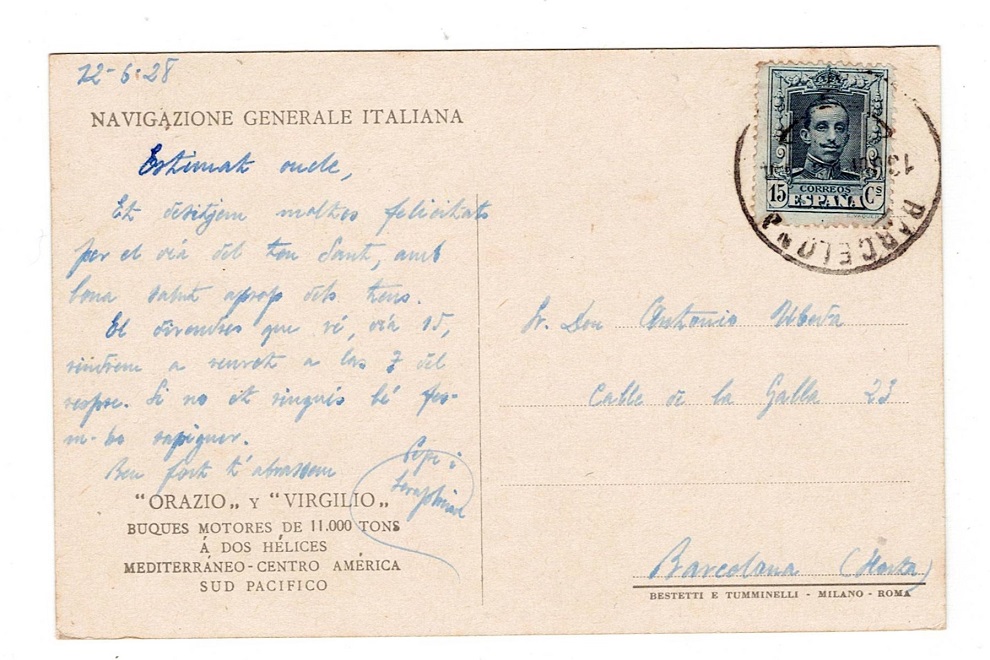 12-6-28
NAVIGAZIONE GENERALE ITALIANA
Estimat oncle,
Et desitjem moltes felicitats
per el dia del teu Sant, amb
bona salut aprop dels teus.
El divendres que vé, dia 15,
vindrem a veuret a las 7 del
vespre. Si no et vingués bé fes-
m-ho sapiguer.
Ben fort t'abrassem
Pepe i
"ORAZIO„ Y "VIRGILIO„
BUQUES MOTORES DE 11.000 TONS
Á DOS HÉLICES
MEDITERRÁNEO-CENTRO AMÉRICA
SUD PACIFICO
CORREOS
15 ESPAÑA Cs
13 JUN
BARCELONA
Sr. Don Antonio Ubeda
Calle de la Galla 23
Barcelona (Horta)
BESTETTI E TUMMINELLI - MILANO - ROMA